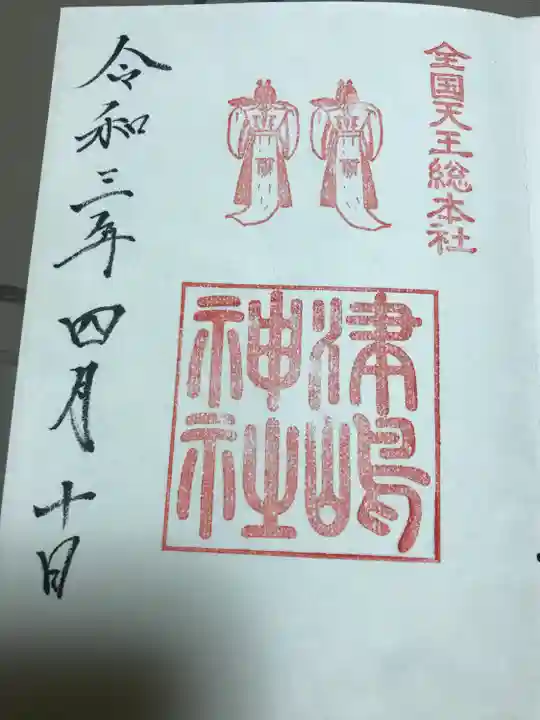 全国天王総本社
津嶋
神社
令和三年四月十日